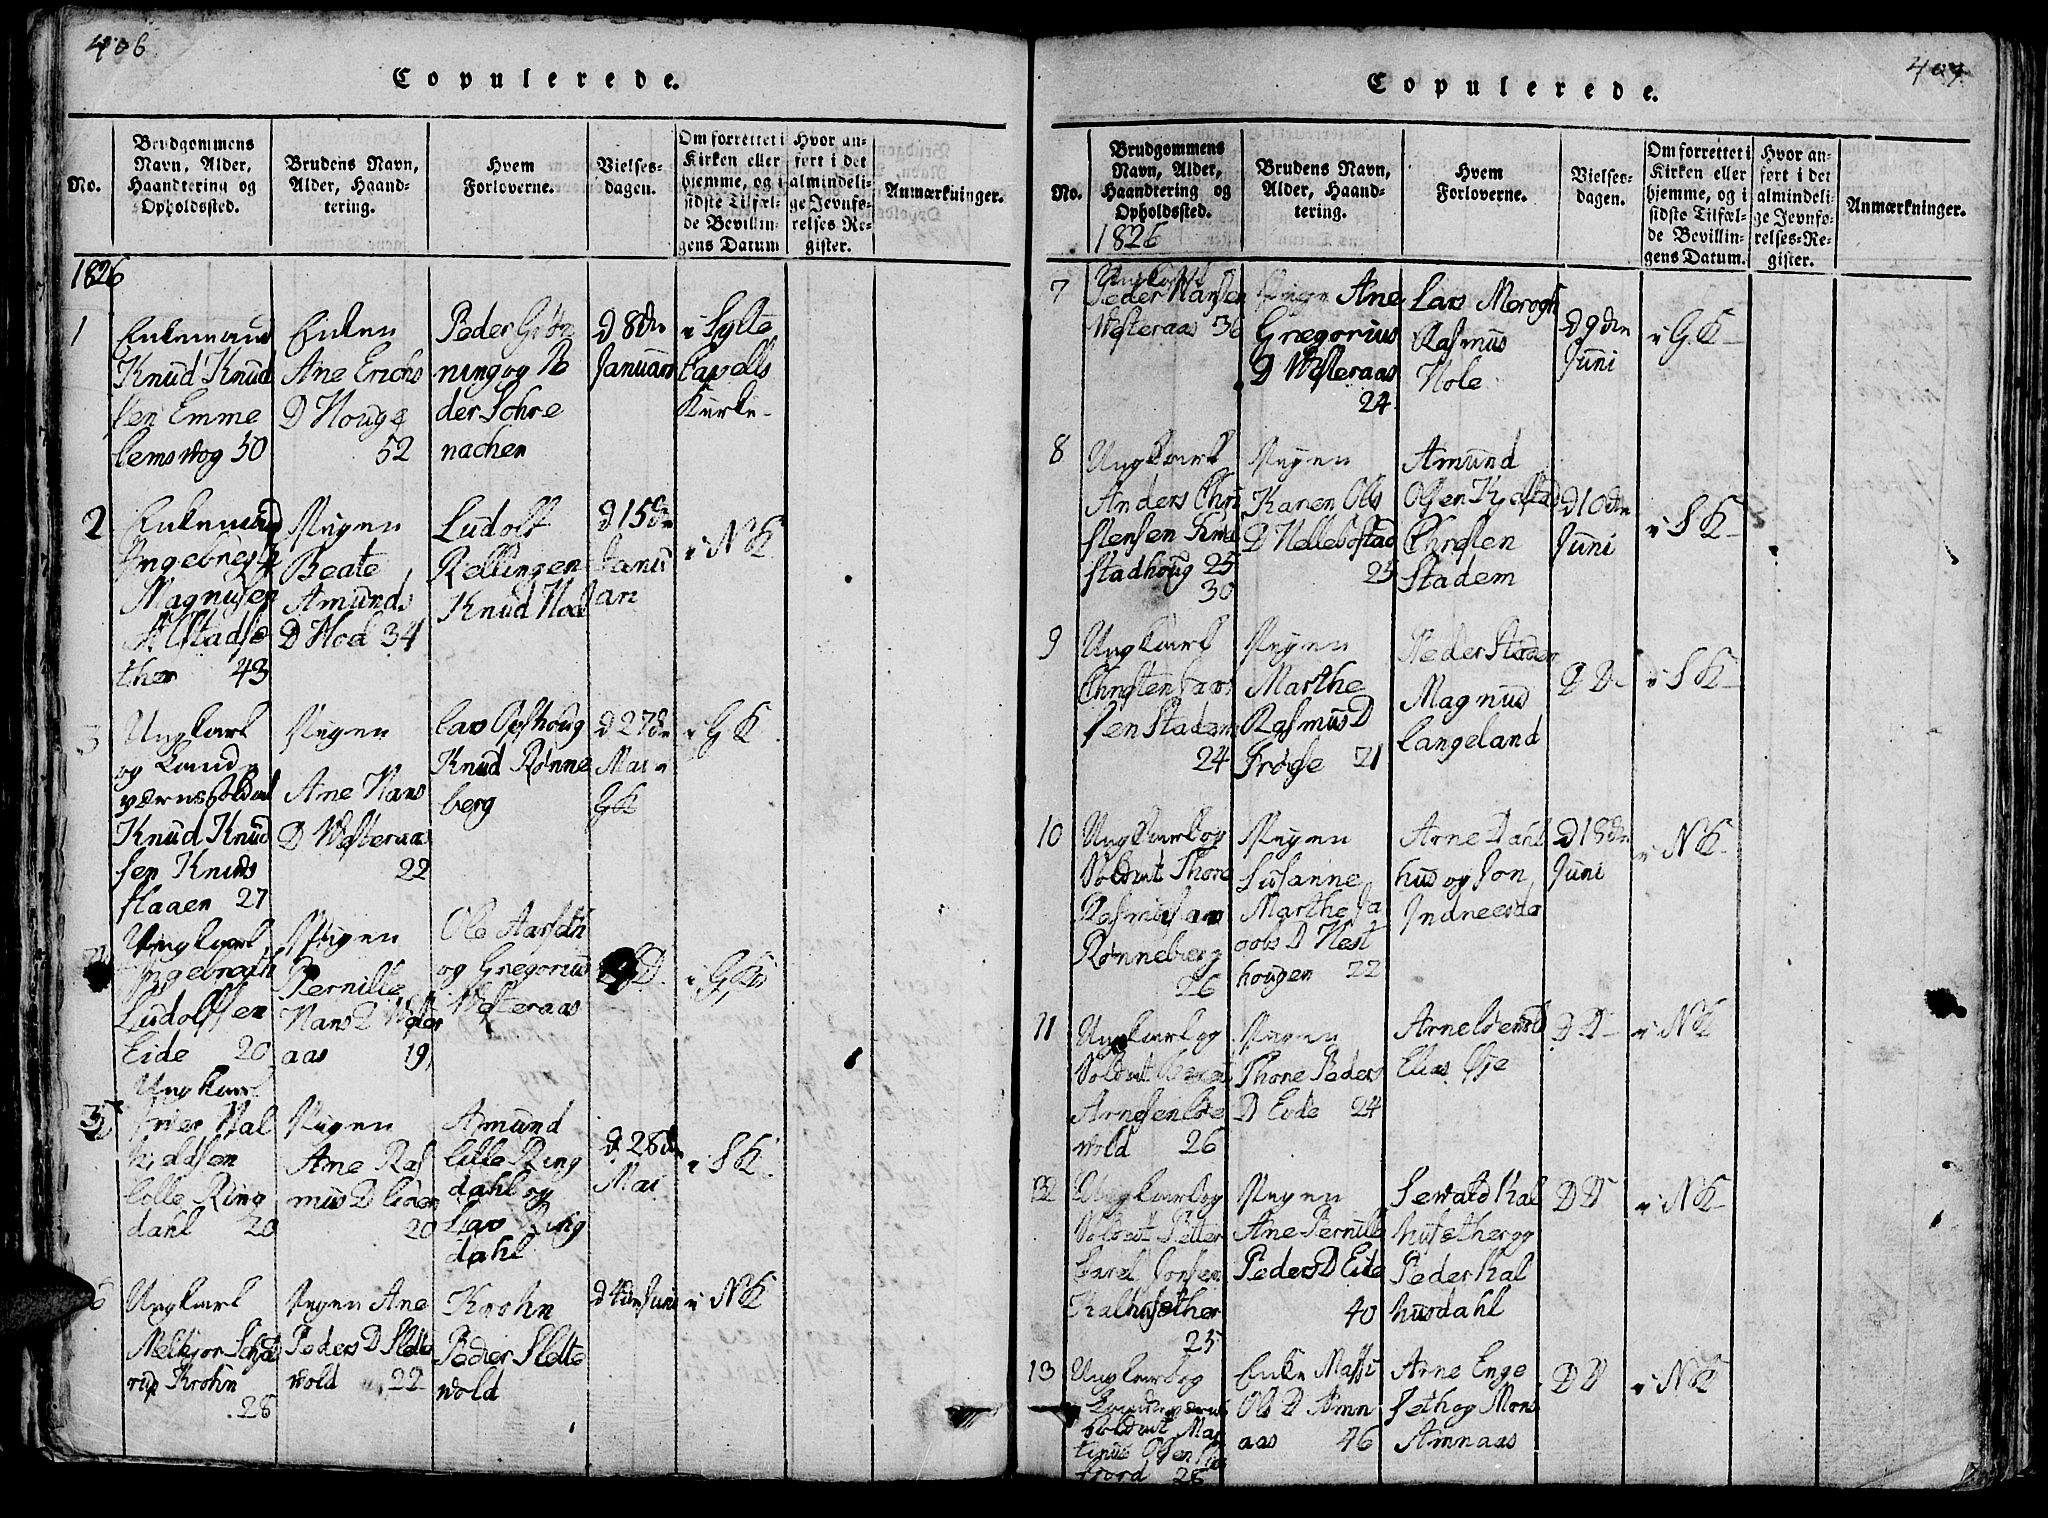 406
Copulerede.
No.
Brudgommens
Navn, Alder,
Haandtering og
Opholdssted.
Brudens Navn,
Alder, Haand-
tering.
Hvem
Forloverne.
Vielses-
dagen.
Om forrettet i
Kirken eller
hjemme, og i
sidste Tilfæl-
de Bevillin-
gens Datum
Hvor an-
ført i det
almindeli-
ge Jevnfø-
relses Re-
gister.
Anmærkninger.
1826
1
Enkemand
Knud Knud
sen Emme
lemsvog 50
Enken
Ane Erichs
D Houge
52
Peder Grøn
ning og Pe
der Sohre
nachen
D 8de
Januari
i Sylte
Capells
Kirke
2
Enkemand
Ingebregt
Magnusen
Alstadsæ
ther 43
Pigen
Beate
Amunds
D Hoel 34
Ludolf
Rellingen
Knud Hoel
D 15de
Janu
ari
i N K
3
Ungkarl
og Land
værnssoldat
Knud Knud
sen Knuds
flaaen 27
Pigen
Ane Hans
D Westeraas
22
Lars Opshoug
Knud Rønne
berg
D 27de
Mai
G K
i G K
Ungkarl
Ingebregth
Ludolfsen
Eide 20
Pigen
Pernille
Hans D Wester
aas 19
Ole Aarseth
og Gregorius
Westeraas
D.
i G K
5
Ungkarl
Iver Hal
kieldsen
Lille Ring
dahl 20
Pigen
Ane Ras
mus D Lien
20
Amund
Lille Ring
dahl og
Lars Ring
dahl
D 28de
Mai
i S K
6
Ungkarl
Melkjor Schjel
rup Krohn
28
Pigen Ane
Peders D Slette
vold 22
Krohn
Peder Slette
vold
D 4de Juni
i N K
407
Copulerede.
No.
Brudgommens
Navn, Alder,
Haandtering og
Opholdssted.
1826
Brudens Navn,
Alder, Haand-
tering.
Hvem
Forloverne.
Vielses-
dagen.
Om forrettet i
Kirken eller
hjemme, og i
sidste Tilfæl-
de Bevillin-
gens Datum.
Hvor an-
ført i det
almindeli-
ge Jevnfø-
relses-Re-
gister.
Anmærkninger.
7
Ungkarl
Peder Hansen
Westeraas 30
Pigen Ane
Gregorius
D Westeraas
24
Lars Merogh
Rasmus
Hole
D 9de
Juni
i G. K
8
Ungkarl
Anders Chri
stensen
Stadhoug 25
30
Pigen
Karen Ols
D Hellebostad
25
Amund
Olsen
Christen
Stadem
D 10de
Juni
i S K
9
Ungkarl
Christen Lars
sen Stadem
24
Pigen
Marthe
Rasmus D
Frøise 21
Peder Stadem
Magnus
Langeland
D D
i S K
10
Ungkarl og
Soldat Thore
Rasmusen
Rønneberg
26
Pigen
Susanne
Marthe Ja
cobs D Nest
hougen 22
Arne Dahl
hus og Jon
Indreeide
D 18de
Juni
i N K
11
Ungkarl og
Soldat
Arnesen Løe
vold 26
Pigen
Thone Peders
D Eide 24
Arne Løevold
Elias Øye
D D
i N K
12
Ungkarl og
Soldat Petter
Carel Jonsen
Kalhusæther
25
Pigen
Ane Pernille
Peders D Eide
40
Sevald Kal
husæther og
Peder Kal
husdahl
D D
i N K
13
Ungkarl og
Landeværns
soldat Mar
tinus Olsen
fjord 28
Enke Massi
Ols D Amn
aas 46
Arne Enge
seth og Mons
Amnaas
D D
i N K